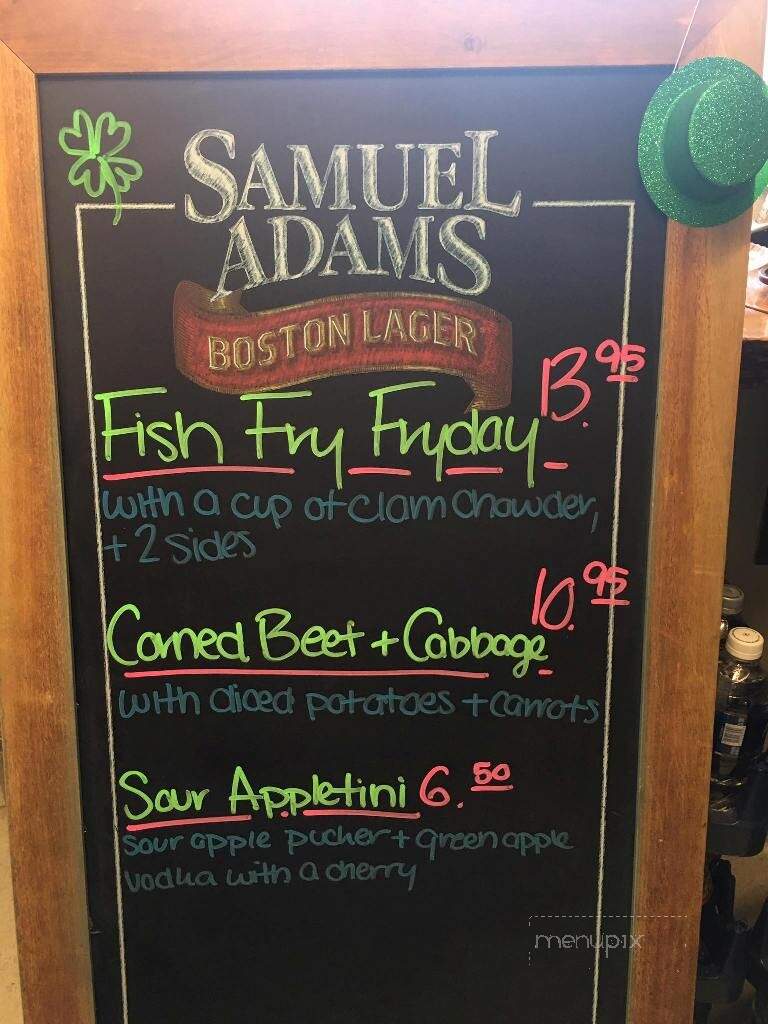 SAMUEL
ADAMS
BOSTON LAGER
13.95
Fish Fry Fryday
with a cup of clam chowder,
+ 2 sides
10.95
Corned Beef + Cabbage
with diced potatoes + carrots
Sour Appletini 6.50
sour apple pucker + green apple
vodka with a cherry
menupix